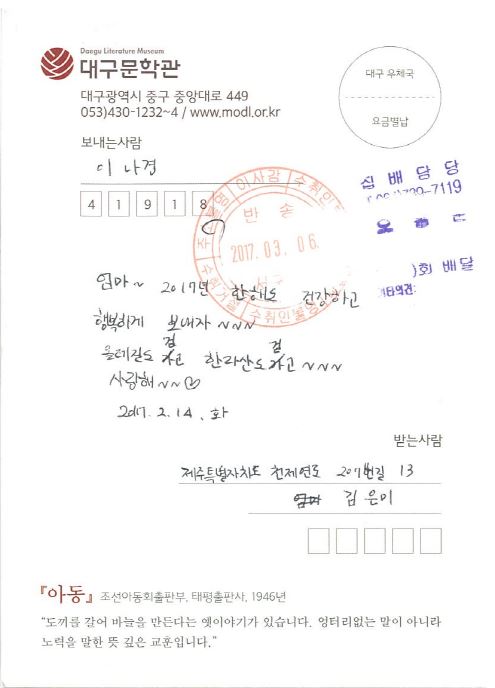 Daegu Literature Museum
대구문학관
대구광역시 중구 중앙대로 449
053)430-1232~4 / www.modl.or.kr
대구 우체국
요금별납
보내는사람
이 나경
4 1 9 1 8
이사감
수취인
반송
2017. 03. 06.
수취인불명
집배담당
739-7119
)회 배달
기타의견:
엄마~ 2017년 한해도 건강하고
행복하게 보내자~~~
올레길도 걷고 한라산도 걷고~~~
사랑해~~♡
2017. 2. 14. 화
받는사람
제주특별자치도 천제연로 207번길 13
김은미
『아동』 조선아동회출판부, 태평출판사, 1946년
“도끼를 갈어 바늘을 만든다는 옛이야기가 있습니다. 엉터리없는 말이 아니라
노력을 말한 뜻 깊은 교훈입니다.”